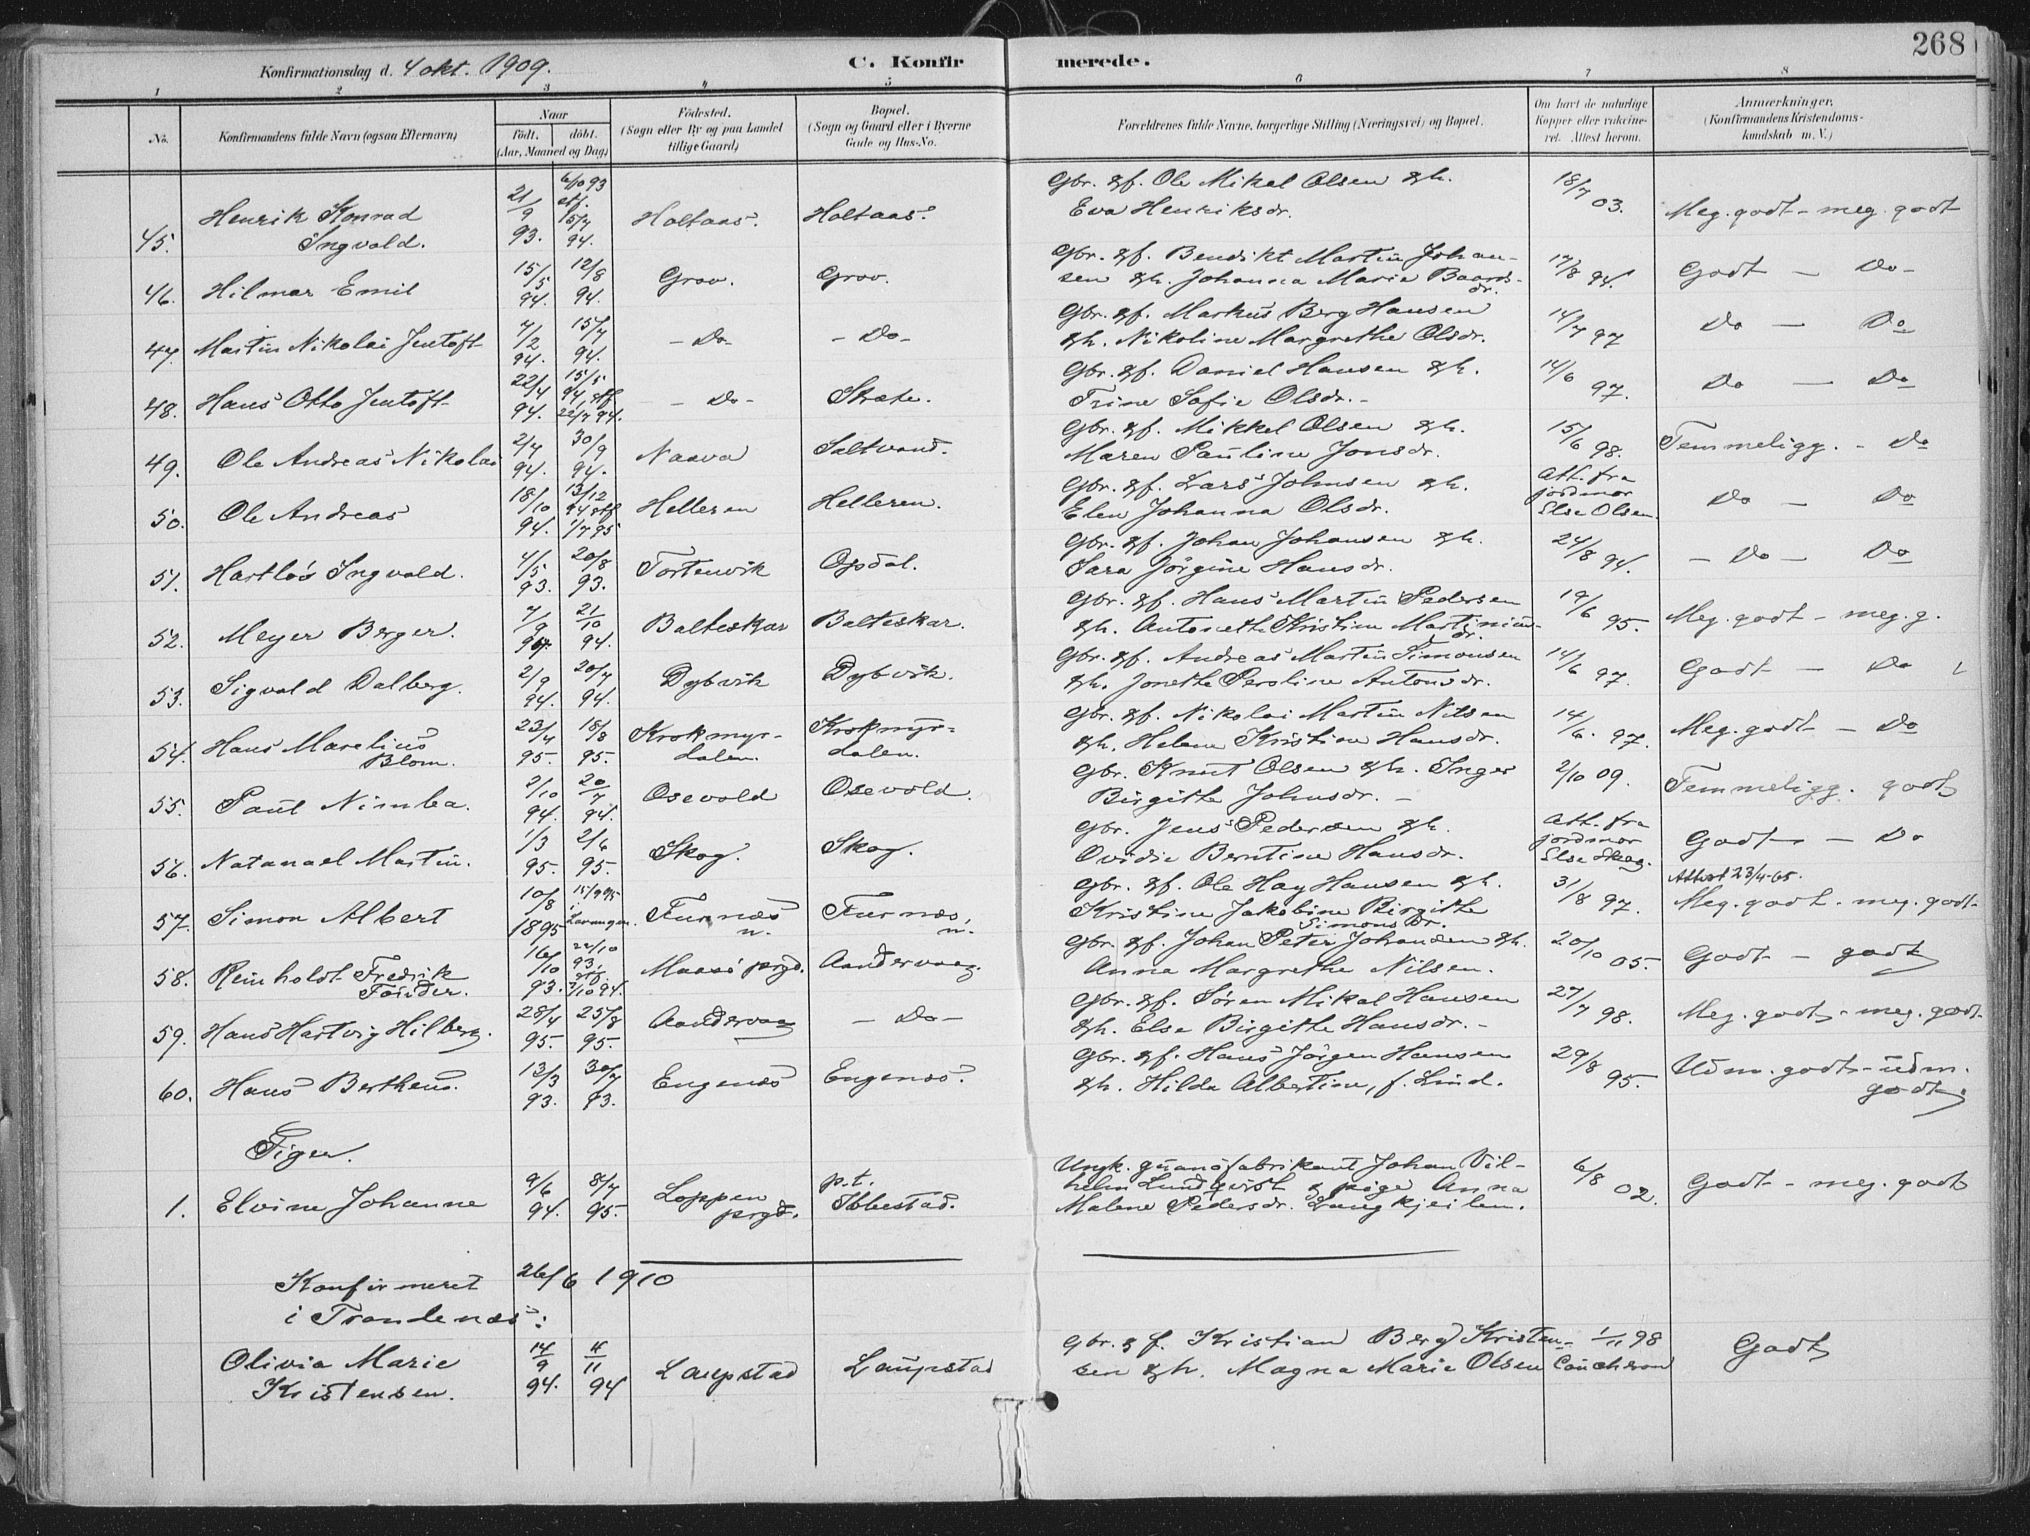 268
Konfirmationsdag d. 4 okt. 1909.
C. Konfirmerede.
1 2 3 4 5 6 7 8
No. Konfirmandens fulde Navn (ogsaa Efternavn) Naar født. døbt. (Aar, Maaned og Dag) Fødested. (Sogn eller By og paa Landet tillige Gaard) Bopæl. (Sogn og Gaard eller i Byerne Gade og Hus-No. Forældrenes fulde Navne, borgerlige Stilling (Næringsvei) og Bopæl. Om havt de naturlige Kopper eller vakcineret. Attest herom. Anmærkninger. (Konfirmandens Kristendomskundskab m. V.)
45. Henrik Konrad Ingvald. 21/9 93. 6/10 93 stf. 15/7 94. Holtaas. Holtaas. Gbr. gf. Ole Mikal Olsen gh. Eva Henriksdr. 18/7 03. Meg. godt - meg. godt
46. Hilmar Emil 15/5 94. 12/8 94. Grov. Grov. Gbr. gf. Bendikt Martin Johansen gh. Johanna Marie Baardsdr. 17/8 94. Godt - Do -
47. Martin Nikolai Jentoft 7/2 94. 15/7 94. - Do - - Do - Gbr. gf. Markus Berg Hansen gh. Nikoline Margrethe Olsdr. 14/7 97 Do - Do
48. Hans Otto Jentoft 22/4 94. 15/5 94, stf 22/7 94. - Do - Skate. Gbr. gf. Daniel Hansen gh. Trine Sofie Olsdr. - 14/6 97. Do - Do
49. Ole Andreas Nikolai 2/7 94. 30/9 94. Naava Saltvand. Gbr. gf. Mikkel Olsen gh. Maren Pauline Jonsdr. 15/6 98. Temmeligg. - Do
50. Ole Andreas 18/10 94. 13/12 94 stf 1/7 95 Helleren Helleren. Gbr. gf. Lars Johnsen gh. Elen Johanna Olsdr. Att. fra jordmor Else Olsen. Do - Do
51. Hartløs Ingvald. 4/5 93. 20/8 93. Tortenvik Opdal. Gbr. gf. Johan Johansen gh. Sara Jørgine Hansdr. 24/8 94. - Do - Do
52. Meyer Berger. 7/9 94. 21/10 94. Balteskar Balteskar. Gbr. gf. Hans Martin Pedersen gh. Antonethe Kristine Martiniusdr. 19/6 95. Meg. godt - meg. g.
53. Sigvald Dalberg. 2/9 94. 20/7 94. Dybvik Dybvik. Gbr. gf. Andreas Martin Simonsen gh. Jonethe Peroline Antonsdr. 14/6 97. Godt - Do
54. Hans Marelius Blom. 23/4 95. 18/8 95. Krokmyrdalen. Krokmyrdalen. Gbr. gf. Nikolai Martin Nilsen gh. Helene Kristine Hansdr. 14/6. 97. Meg. godt - Do
55. Paul Nimba. 2/10 94. 20/7 94. Osevold Osevold. Gbr. Knut Olsen gh. Inger Birgithe Johnsdr. - 2/10 09. Temmeligg. godt
56. Natanael Martin. 1/3 95. 2/6 95. Skog. Skog. Gbr. Jens Pedersen gh. Ovidie Berntine Hansdr. Att. fra jordmor Else Skog. Godt - Do
57. Simon Albert 10/8 1895 15/9 95 i Lavangen. Furnæs n. Furnæs, n. Gbr. gf. Ole Hay Hansen gh. Kristine Jakobine Birgithe Simonsdr. 31/8 97. Attest 23/4-65. Meg. godt - meg. godt
58. Reinholdt Fredrik Forider. 16/10 93. 22/10 93. stf 7/10 94. Maasø prgd. Aandervaag. Gbr. gf. Johan Peter Johansen gh. Anna Margrethe Nilsen. 20/10 05. Godt - godt
59. Hans Hartvig Hilberg. 28/4 95. 25/8 95. Aandervaag - Do - Gbr. gf. Søren Mikal Hansen gh. Else Birgithe Hansdr. - 27/7 98. Meg. godt - meg. godt.
60. Hans Bertheus. 13/3 93. 30/7 93. Engenæs Engenæs. Gbr. gf. Hans Jørgen Hansen gh. Hilda Albertine, f. Lind. 29/8 95. Udm. godt - udm. godt
Piger.
1. Elvine Johanne 9/6 94. 8/7 95. Loppen prgd. p.t. Ibbestad. Ungk. guanofabrikant Johan Vilhelm Lundqvist & pige Anna Malene Pedersdr. Langkjeilen. 6/8 02. Godt - meg. godt
Konfirmeret 26/6 1910
i Trondenæs:
Olivia Marie Kristensen. 14/9 94. 4/11 94 Laupstad Laupstad Gbr. & f. Kristian Berg Kristensen gh. Magna Marie Olsen 1/11 98 Conchron Godt